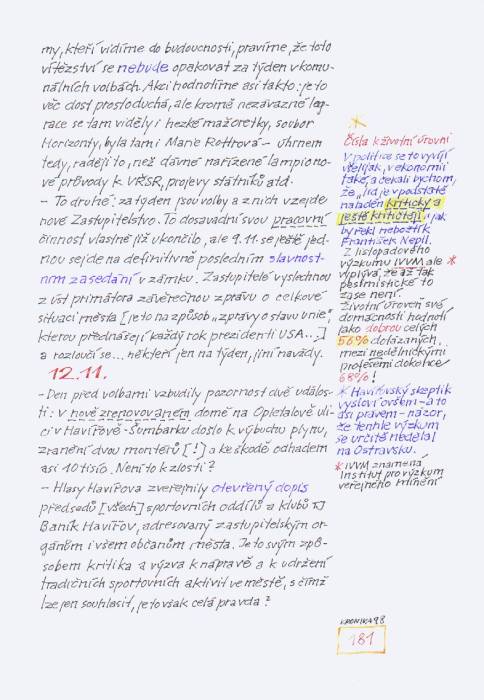 my, kteří vidíme do budoucnosti, pravíme, že toto
vítězství se nebude opakovat za týden v komu-
nálních volbách. Akci hodnotíme asi takto: je to
věc dost prostoduchá, ale kromě nezávazné leg-
race se tam viděly i hezké mažoretky, soubor
Horizonty, byla tam i Marie Rottrová - úhrnem
tedy, raději to, než dávné nařízené lampiono-
vé průvody k VŘSR, projevy státníků atd.
- To druhé: za týden jsou volby a z nich vzejde
nové Zastupitelstvo. To dosavadní svou pracovní
činnost vlastně již ukončilo, ale 9.11. se ještě jed-
nou sejde na definitivně posledním slavnost-
ním zasedání v zámku. Zastupitelé vyslechnou
z úst primátora závěrečnou zprávu o celkové
situaci města [je to na způsob „zprávy o stavu unie",
kterou přednášejí každý rok prezidenti USA...]
a rozloučí se... někteří jen na týden, jiní navždy.
12.11.
- Den před volbami vzbudily pozornost dvě událos-
ti: v nově zrenovovaném domě na Opletalově uli-
ci v Havířově-Šumbarku došlo k výbuchu plynu,
zranění dvou montérů [!] a ke škodě odhadem
asi 10 tisíc. Není to k zlosti?
- Hlasy Havířova zveřejnily otevřený dopis
předsedů [všech] sportovních oddílů a klubů TJ
Baník Havířov, adresovaný zastupitelským or-
gánům i všem občanům města. Je to svým způ-
sobem kritika a výzva k nápravě a k udržení
tradičních sportovních aktivit ve městě, s čímž
lze jen souhlasit, je to však celá pravda?
Čísla k životní úrovni
V politice se to vyvíjí
všelijak, v ekonomii
také, a čekali bychom,
že „lid je v podstatě
naladěn kriticky a
ještě kritičtěji", jak
by řekl nebožtík
František Nepil.
Z listopadového
výzkumu IVVM ale *
vyplývá, že až tak
pesimistické to
zase není.
Životní úroveň své
domácnosti hodnotí
jako dobrou celých
56% dotázaných,
mezi nedělnickými
profesemi dokonce
68%!
* Havířovský skeptik
vysloví ovšem - a to
dsi právem - názor,
že tenhle výzkum
se určitě nedělal
na Ostravsku.
* IVVM znamená
Institut pro výzkum
veřejného mínění
KRONIKA 98
181